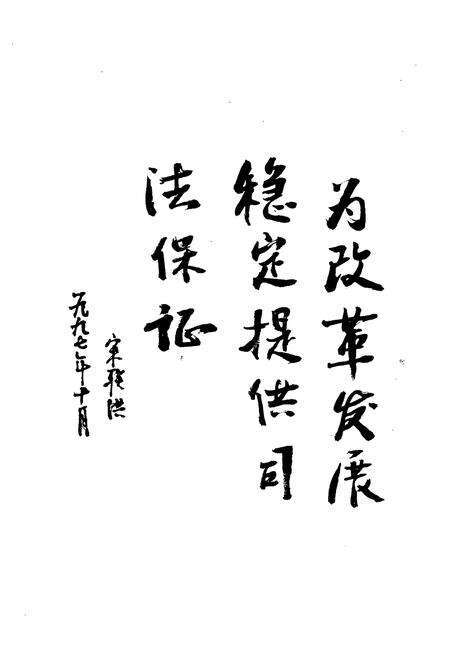 为改革发展
稳定提供司
法保证
宋
洪
一九九七年十月